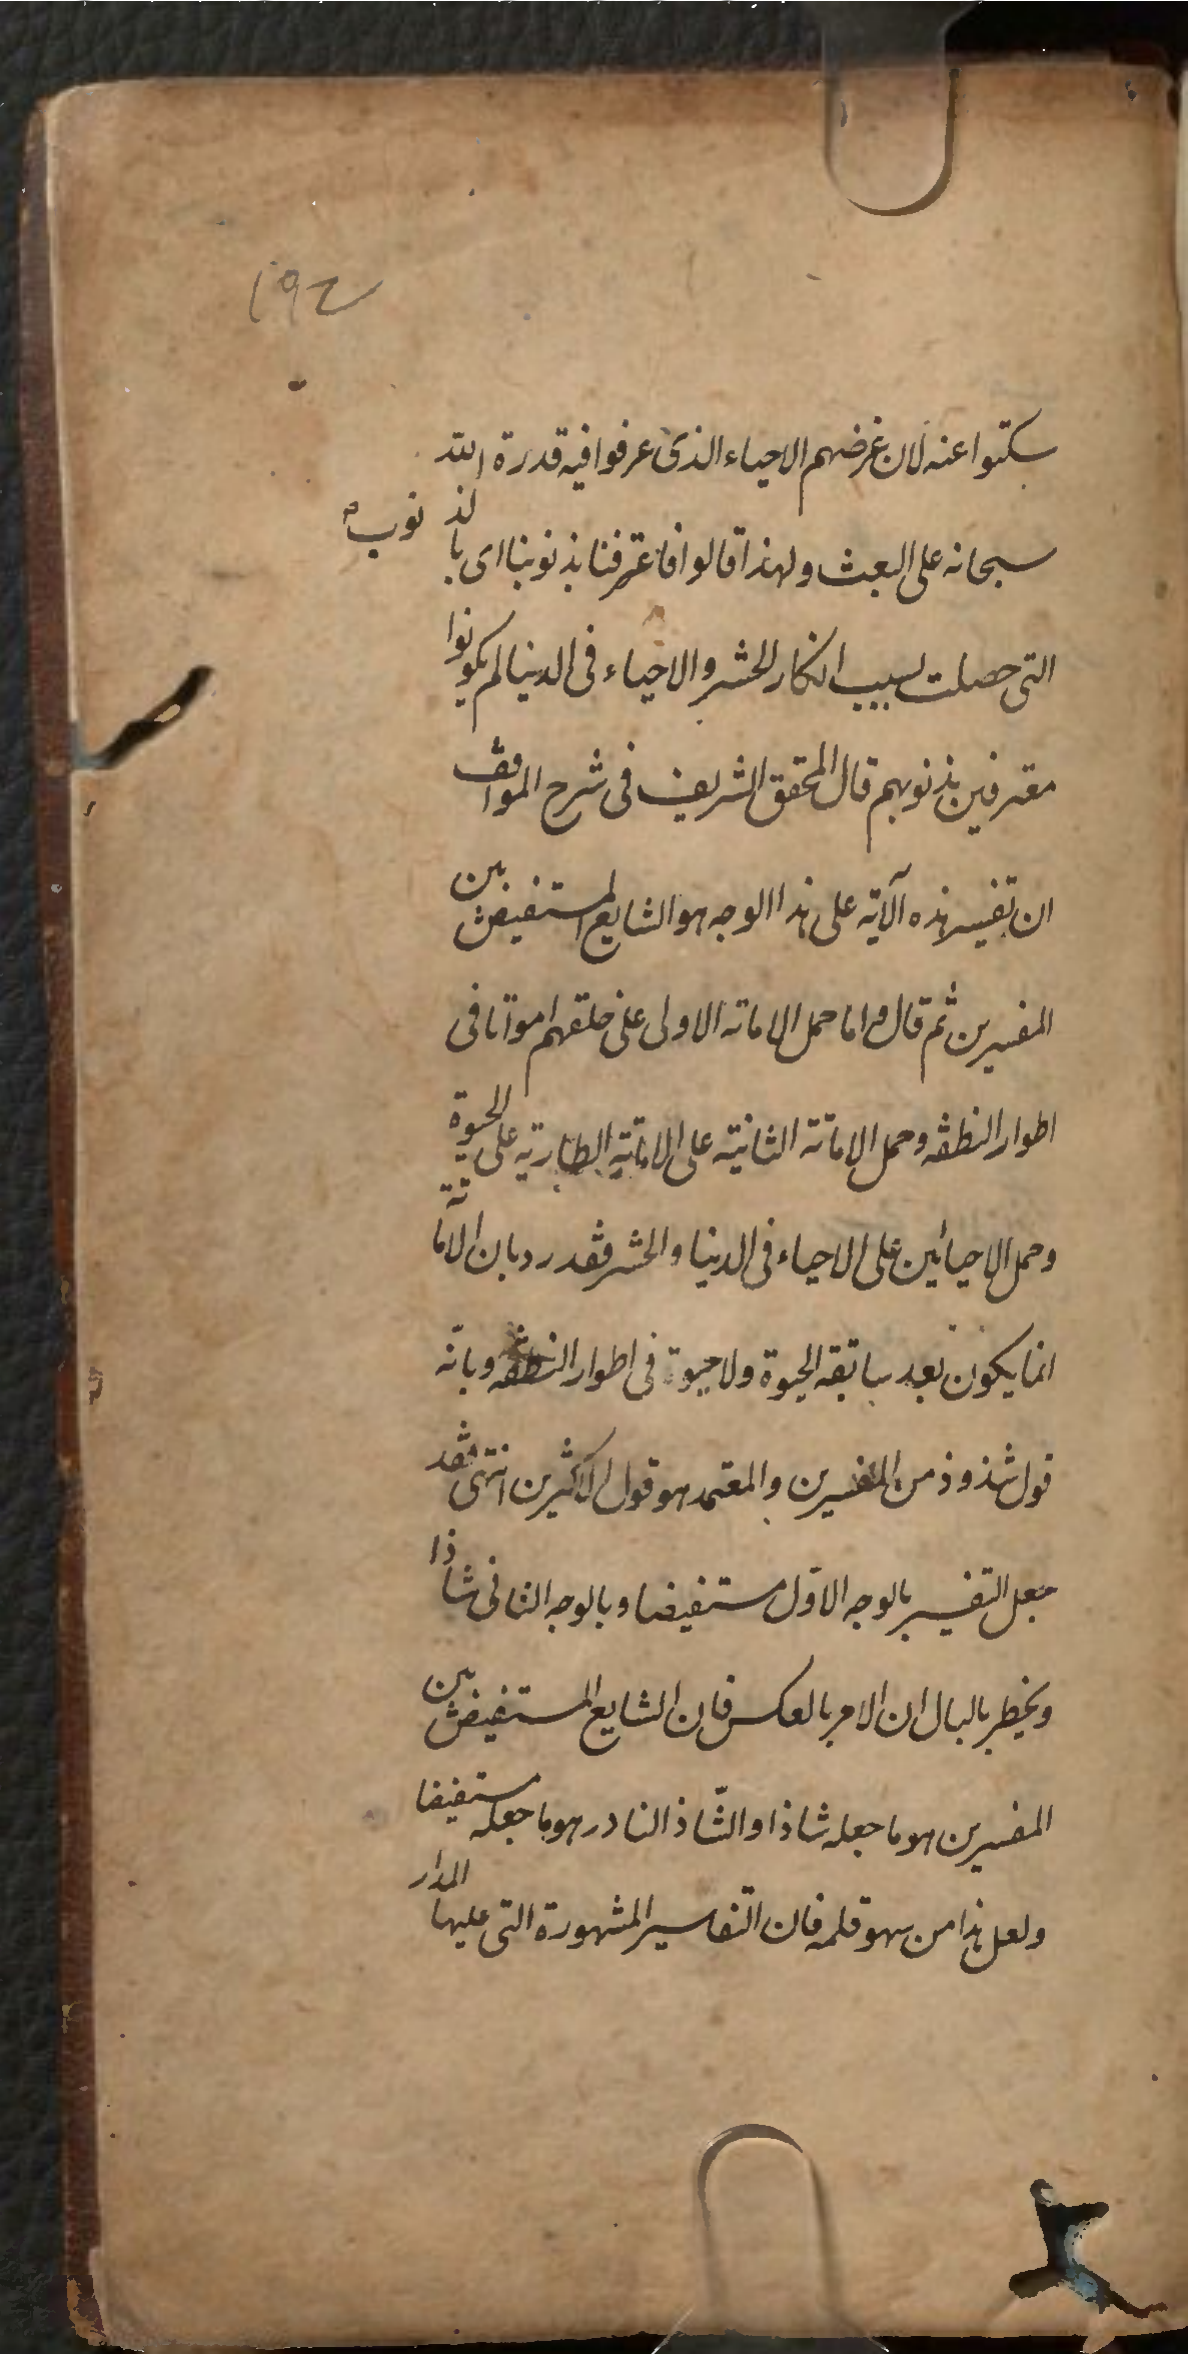 ١٩٤
سكتوا عنه لان غرضهم الاحياء الذى عرفوا فيه قدرة الله
سبحانه على البعث ولهذا قالوا فاعترفنا بذنوبنا اى بالذنوب
التى حصلت بسبب انكار الحشر والاحياء فى الدنيا لم يكونوا
معترفين بذنوبهم قال المحقق الشريف فى شرح المواقف
ان تفسير هذه الآية على هذا الوجه هو الشايع المستفيض بين
المفسرين ثم قال واما حمل الاماتة الاولى على خلقهم امواتا فى
اطوار النطفة وحمل الاماتة الثانية على الاماتة الطارية على الحيوة
وحمل الاحيائين على الاحياء فى الدنيا والحشر فقد رد بان الاماتة
انما يكون بعد سابقة الحيوة ولا حيوة فى اطوار النطفة وبانه
قول شذوذ من المفسرين والمعتمد هو قول الاكثرين انتهى فقد
جعل التفسير بالوجه الاول مستفيضا وبالوجه الثانى شاذا
ويخطر بالبال ان الامر بالعكس فان الشايع المستفيض بين
المفسرين هو ما جعله شاذا والشاذ النادر هو ما جعله مستفيضا
ولعل هذا من سهو قلمه فان التفاسير المشهورة التى عليها المدار